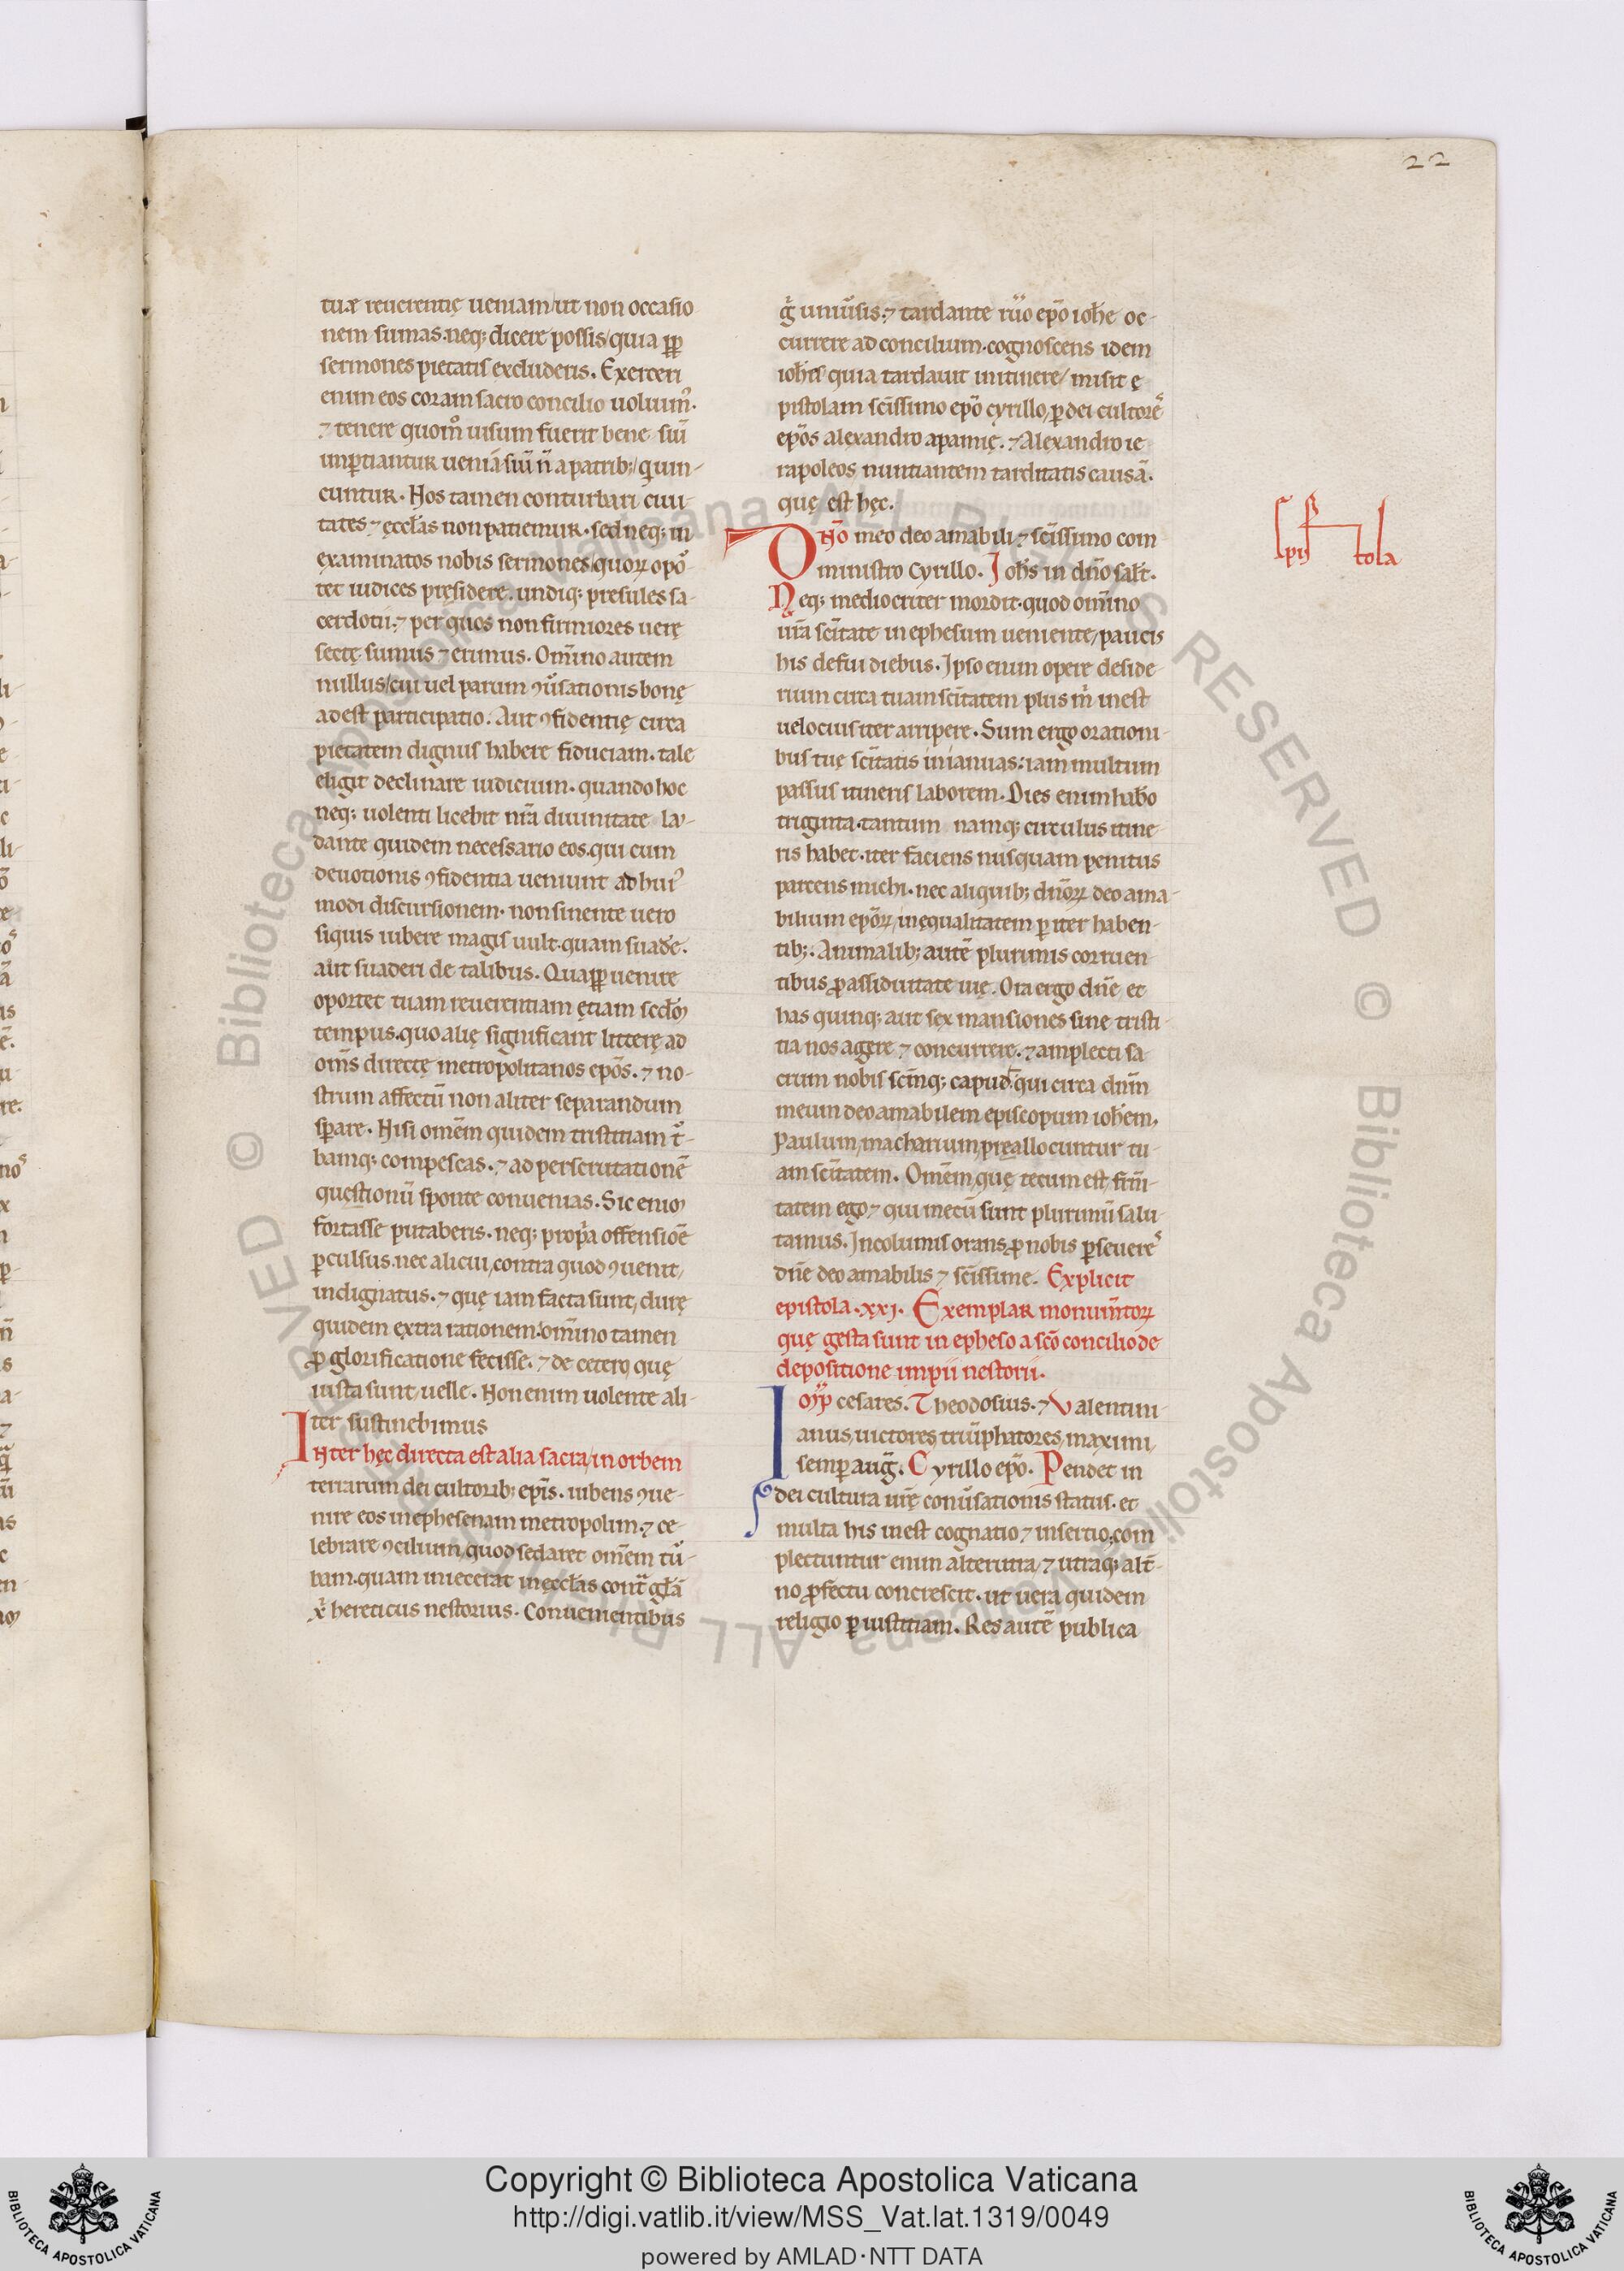 22
tuæ reuerentię ueniam/ut non occasio
nem sumas. neq; dicere possis/quia ꝓp̱
sermones pietatis excluderis. Exerceri
enim eos coram sacro concilio uoluim᷒.
⁊ tenere quom̊ uisum fuerit bene siue
inꝑtiantur ueniā siue ñ a patrib;/q̇ uin-
cuntur. Nos tamen conturbari ciui-
tates ⁊ ęcclas non patiemur. sed neq; in
ęxaminatos nobis sermones quoꝝ opor
tet iudices pręsidere. undiq; presules sa-
cerdotii. ⁊ per quos non firmiores uerę
sectę sumus ⁊ erimus. Om̄ino autem
nullus/cui uel parum ꝯuersationis bonę
adest participatio. Aut ꝯfidentię circa
pietatem dignus habere fiduciam. tale
eligit declinare iudicium. quando hoc
neq; uolenti licebit nr̄a diuinitate lau-
dante quidem necessario eos. qui cum
deuotionis ꝯfidentia ueniunt ad hui᷒
modi discursionem. non sinente uero
siquis iubere magis uult. quam suade.
aut suaderi de talibus. Quaꝓp̱ uenire
oportet tuam reuerentiam ętiam secdm
tempus. quo alię significant litterę ad
om̄s directę metropolitanos ep̄os. ⁊ no-
strum affectū non aliter separandum
sperare. Nisi om̄em quidem tristitiam tur-
bamq; compescas. ⁊ ad perscrutationē
questionū sponte conuenias. Sic enim
fortasse putaberis. neq; propria offensiōe
ꝑculsus. nec alicui, contra quod ꝯuenit,
indignatus. ⁊ quę iam facta sunt, durę
quidem ęxtra rationem. om̄ino tamen
ꝓ glorificatione fecisse. ⁊ de cetero, quę
iusta sunt uelle. Non enim uolente ali-
ter sustinebimus
Inter hęc directa est alia sacra/in orbem
terrarum dei cultorib; ep̄is. iubens ꝯue-
nire eos in ephesenam metropolim. ⁊ ce-
lebrare ꝯcilium/quod sedaret om̄em tur-
bam. quam iniecerat in ęcclas cont̄ gl̄a
xp̄i hereticus nestorius. Conuenientibus
g̊ uniuersis. ⁊ tardante rūo ep̄o ioh̄e oc-
currere ad concilium. cognoscens idem
ioh̄s quia tardauit in itinere/misit e
pistolam sc̄issimo ep̄o cyrillo, ꝑ dei cultores
ep̄os alęxandro apamię. ⁊ Alęxandro ie
rapoleos nuntiantem tarditatis causā.
quę est hęc.
Dn̄o meo deo amabili ⁊ sc̄issimo com
ministro cyrillo. Ioh̄s in dn̄o salt̄.
Neq; mediocriter mordit. quod om̄ino
ur̄a sc̄itate in ephesum ueniente/paucis
his defui diebus. Ipso enim opere deside-
rium circa tuam sc̄itatem plus m̊ inest
uelocius iter arripere. Sum ergo orationi-
bus tuę sc̄itatis in ianuas: iam multum
passus itineris laborem. Dies enim habeo
triginta. tantum namq; circulus itine-
ris habet. iter faciens nusquam penitus
parcens michi. nec aliquib; dn̄oꝝ deo ama-
bilium ep̄oꝝ/inęqualitatem ꝑ iter haben-
tib;. Animalib; autē plurimis corruen-
tibus ꝓ assiduitate uię. Ora ergo dn̄e et
has quinq; aut sęx mansiones sine tristi-
tia nos agere ⁊ concurrere. ⁊ amplecti sa
crum nobis sc̄mq; capud. qui circa dn̄m
meum deo amabilem episcopum ioh̄em,
Paulum, macharium, pręallocuntur tu-
am sc̄itatem. Om̄em, quę tecum est frn̄i-
tatem ego ⁊ qui mecū sunt plurimū salu-
tamus. Incolumis orans ꝓ nobis ꝑseueres
dn̄e deo amabilis ⁊ sc̄issime. Explicit
epistola .xxi. Exemplar monumtoꝝ
quę gesta sunt in epheso a sc̄o concilio de
depositione impii nestorii.
Imp̄ cesares. Theodosius. ⁊ Valentini-
anus, uictores, triūphatores, maximi,
semꝑ aug̃. Cyrillo ep̄o. Pendet in
dei cultura ur̄ę conuersationis status. et
multa his inest cognatio ⁊ insertio, com
plectuntur enim alterutra/⁊ utraq; alt̄-
no ꝓfectu concrescit. ut uera quidem
religio ꝑ iustitiam. Res autē publica
Epistola
Copyright © Biblioteca Apostolica Vaticana
http://digi.vatlib.it/view/MSS_Vat.lat.1319/0049
powered by AMLAD·NTT DATA
BIBLIOTECA APOSTOLICA VATICANA
BIBLIOTECA APOSTOLICA VATICANA
© Biblioteca Apostolica Vaticana ALL RIGHTS RESERVED © Biblioteca Apostolica Vaticana ALL RIGHTS RESERVED